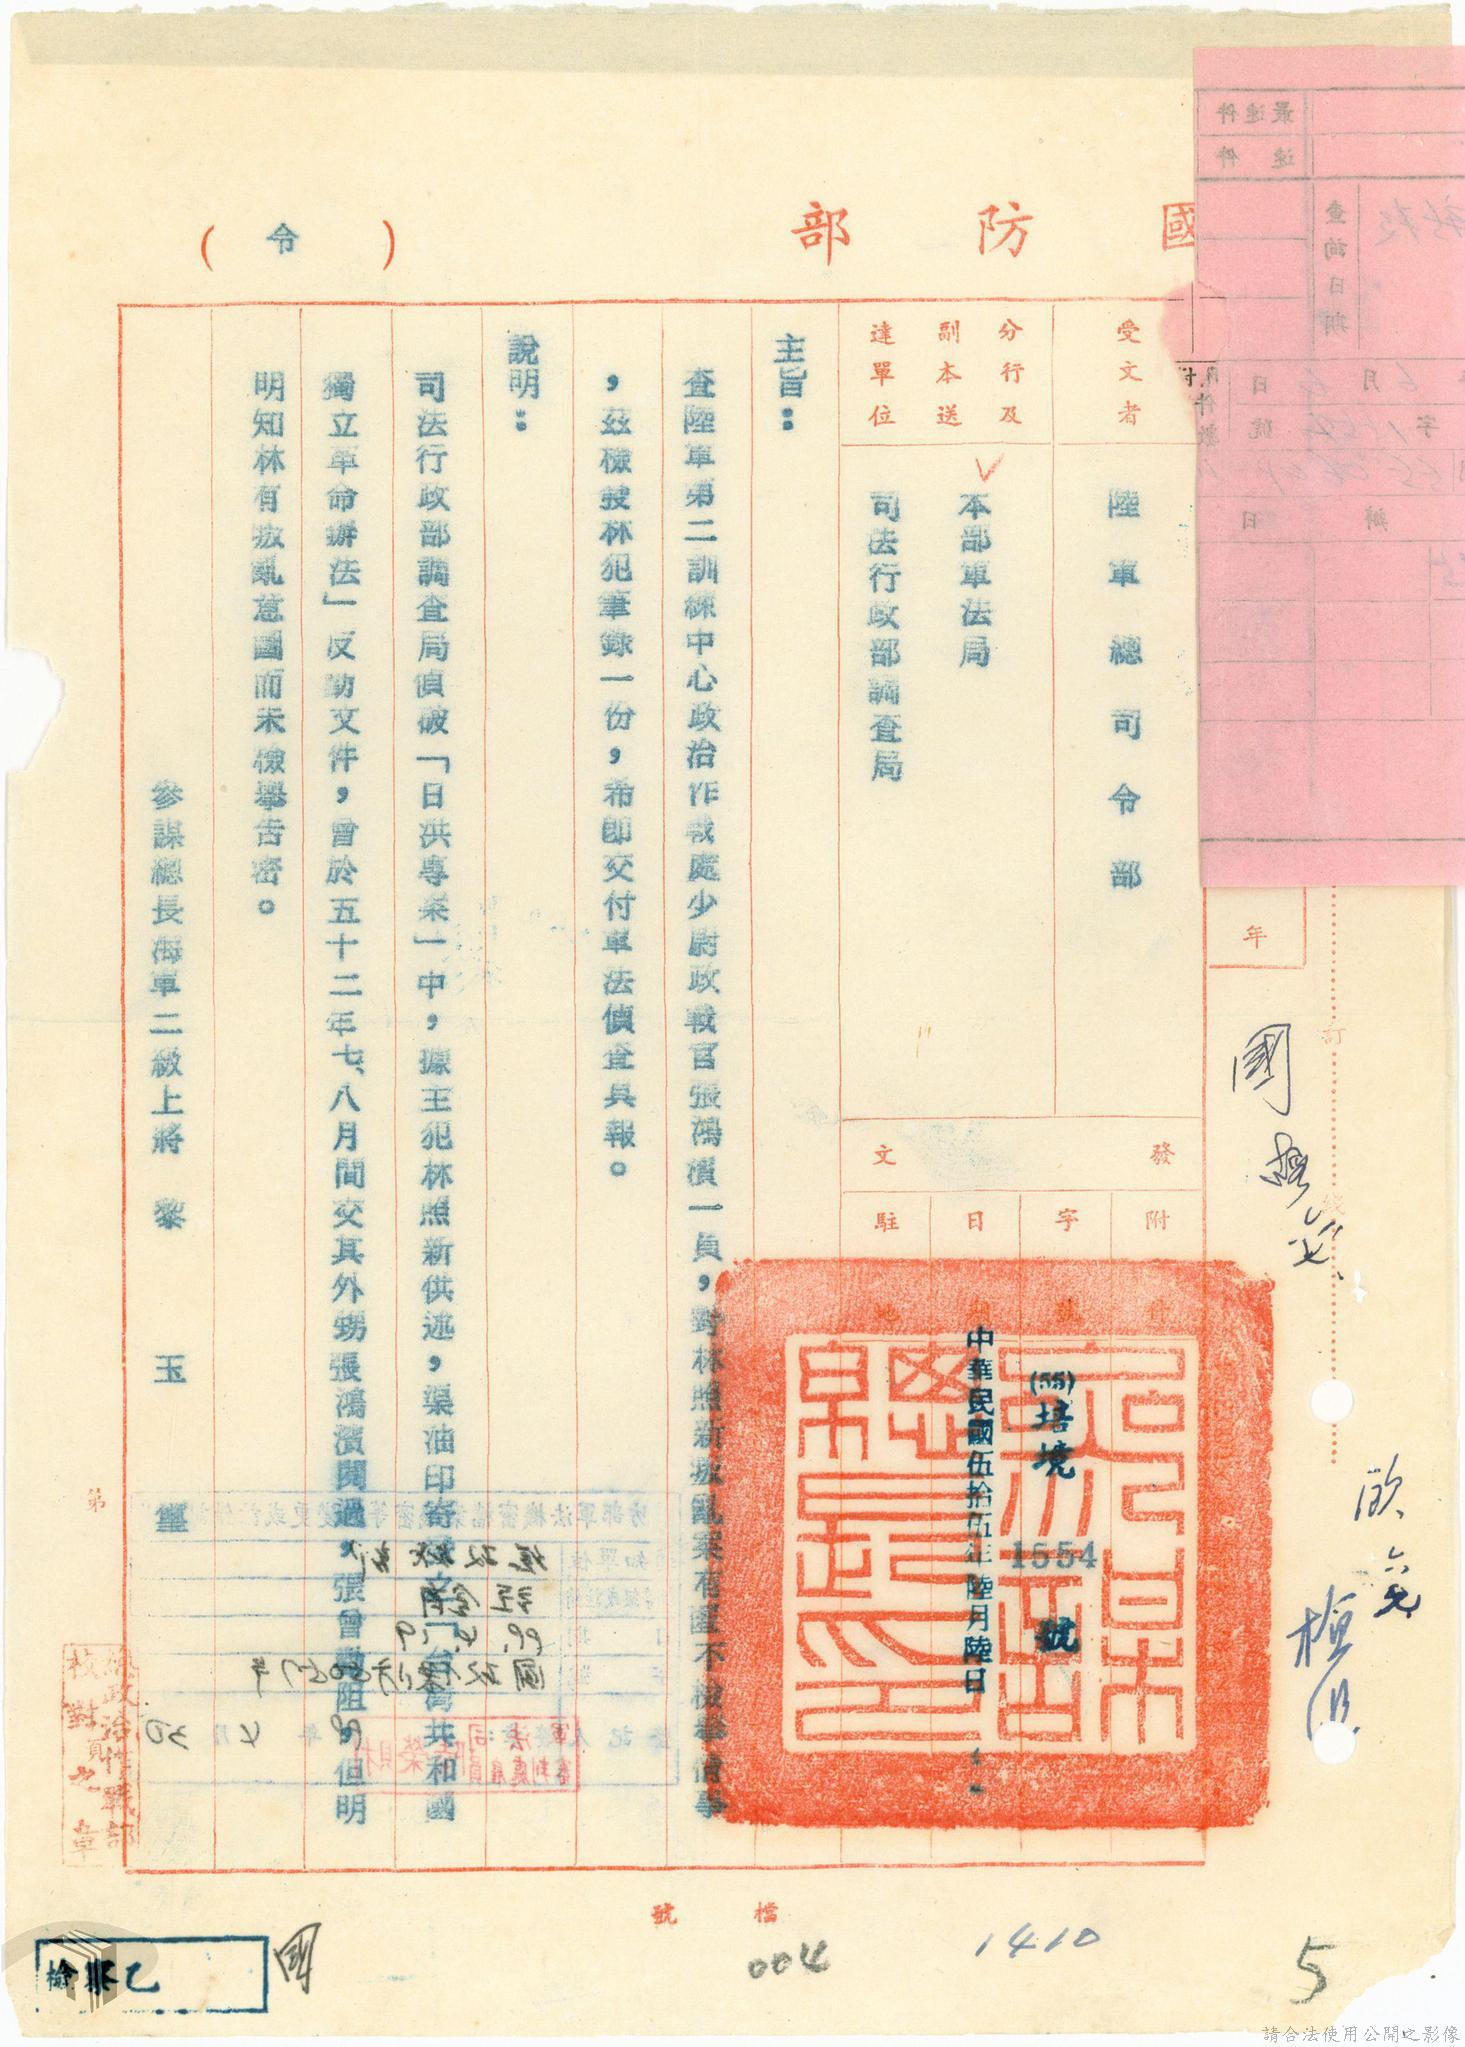 國防部
(令)
受文者
陸軍總司令部
分行及副本送達單位
本部軍法局
司法行政部調查局
發文
附
字
日
駐
(55)培境
1554
號
中華民國伍拾伍年陸月陸日
主旨:
查陸軍第二訓練中心政治作戰處少尉政戰官張鴻濱一員,對林照新叛亂案有匿不檢舉情事
,茲檢發林犯筆錄一份,希即交付軍法偵查具報。
說明:
司法行政部調查局偵破「日洪專案」中,據王犯林照新供述,渠油印寄發之「台灣共和國
獨立革命辦法」反動文件,曾於五十二年七、八月間交其外甥張鴻濱閱過,張曾勸阻,但明
明知林有叛亂意圖而未檢舉告密。
參謀總長海軍二級上將 黎玉璽
總政治作戰部
校對之章
第
年
訂
線
最速件
速件
查詢日期
月
日
字
號
辦
日
件數
檔號
004
1410
5
國
檢
乙
國
請合法使用公開之影像